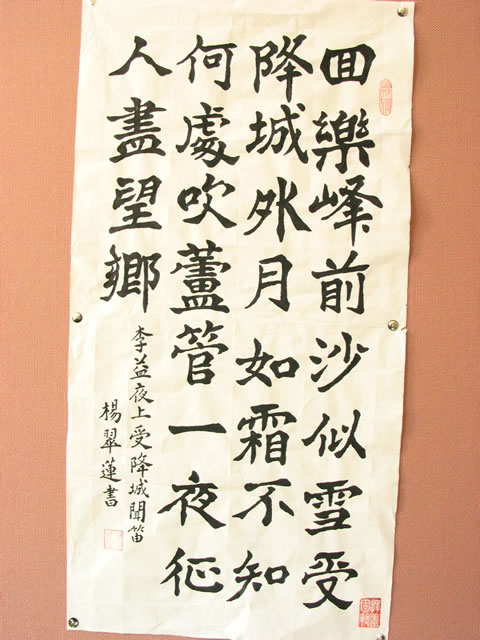 回樂峰前沙似雪受
降城外月如霜不知
何處吹蘆管一夜征
人盡望鄉
李益夜上受降城聞笛
楊翠蓮書